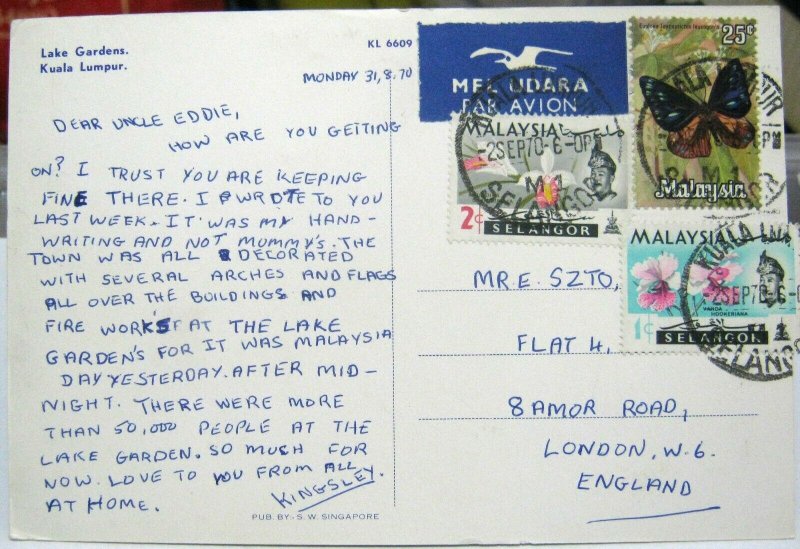 Lake Gardens.
Kuala Lumpur.
KL 6609
MONDAY 31,8.70
DEAR UNCLE EDDIE,
HOW ARE YOU GETTING
ON? I TRUST YOU ARE KEEPING
FINE THERE. I WROTE TO YOU
LAST WEEK. IT WAS MY HAND-
WRITING AND NOT MUMMY'S. THE
TOWN WAS ALL DECORATED
WITH SEVERAL ARCHES AND FLAGS
ALL OVER THE BUILDINGS AND
FIRE WORKS AT THE LAKE
GARDEN'S FOR IT WAS MALAYSIA
DAY YESTERDAY. AFTER MID-
NIGHT. THERE WERE MORE
THAN 50,000 PEOPLE AT THE
LAKE GARDEN. SO MUCH FOR
NOW. LOVE TO YOU FROM ALL
AT HOME. KINGSLEY.
PUB. BY:- S.W. SINGAPORE
MEL UDARA
PAR AVION
25c
Malaysia
MALAYSIA
2c
SELANGOR
-2SEP70-6-0PM
SELANGOR
MALAYSIA
VANDA
HOOKERIANA
1c
SELANGOR
KUALA LUMPUR
-2SEP70-6-
SELANGOR
MR. E. SZTO,
FLAT 4,
8 AMOR ROAD,
LONDON, W.6.
ENGLAND